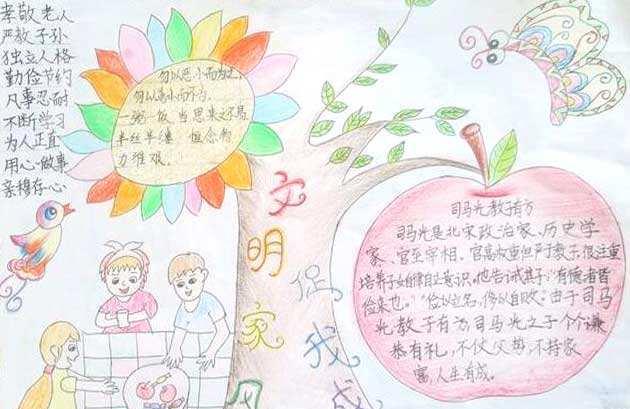 孝敬老人
严教子孙
独立人格
勤俭节约
凡事忍耐
不断学习
为人正直
用心做事
亲穆存心
勿以恶小而为之,
勿以善小而不为。
一粥一饭 当思来之不易
半丝半缕 恒念物
力维艰。
文明家风
促我成
司马光教子有方
司马光是北宋政治家、历史学
家、官至宰相。官高权重但严于教子,很注重
培养子女自律自立意识。他告诫其子:“有德者皆
俭来也。”“俭以立名,侈以自败。”由于司马
光教子有方,司马光之子个个谦
恭有礼,不仗父势,不恃家
富,人生有成。